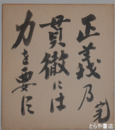 正義乃
貫徹には
力を要に
とらや書店